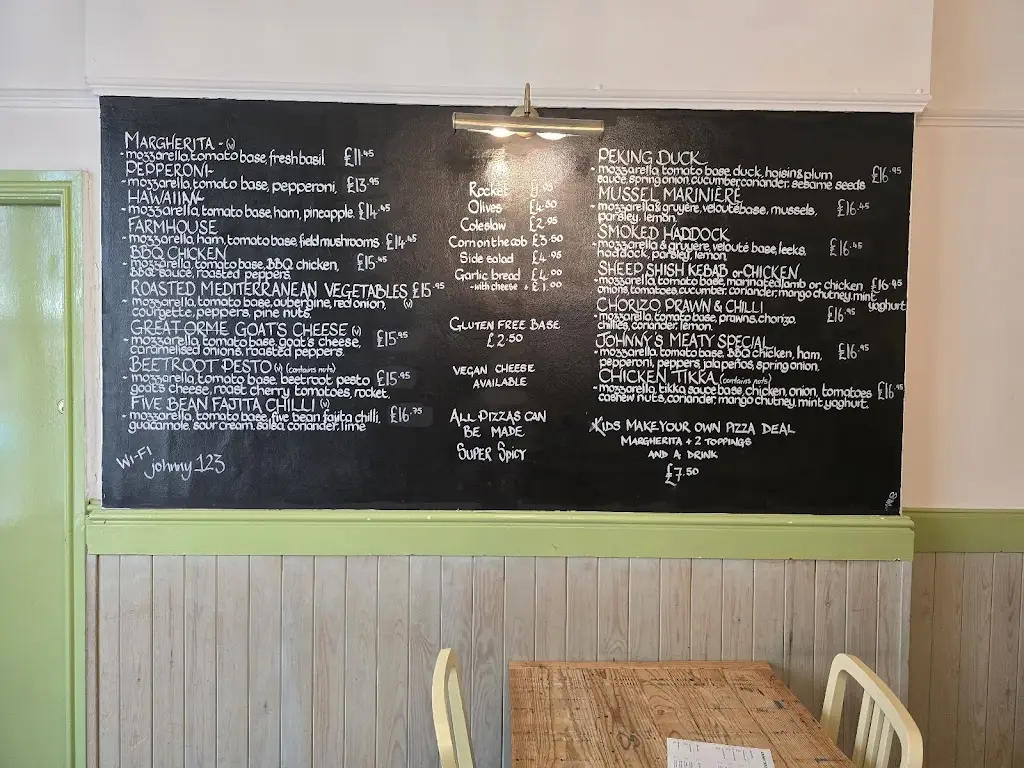 MARGHERITA - (v)
- mozzarella, tomato base, fresh basil. £11.45
PEPPERONI-
- mozzarella, tomato base, pepperoni, £13.95
HAWAIIN-
- mozzarella, tomato base, ham, pineapple. £14.45
FARMHOUSE
- mozzarella, ham, tomato base, field mushrooms £14.45
BBQ CHICKEN
- mozzarella, tomato base, BBQ chicken, £15.45
BBQ sauce, roasted peppers.
ROASTED MEDITERRANEAN VEGETABLES £15.95
- mozzarella, tomato base, aubergine, red onion, (v)
courgette, peppers, pine nuts.
GREAT ORME GOAT'S CHEESE (v)
- mozzarella, tomato base, goat's cheese, £15.95
caramelised onions, roasted peppers.
BEETROOT PESTO (v) (contains nuts)
- mozzarella, tomato base, beetroot pesto £15.95
goat's cheese, roast cherry tomatoes, rocket,
FIVE BEAN FAJITA CHILLI (v)
- mozzarella, tomato base, five bean fajita chilli, £16.75
guacamole, sour cream, salsa, coriander, lime
WI-FI johnny_123
Rocket
Olives £4.50
Coleslaw £2.95
Corn on the cob £3.50
Side salad £4.95
Garlic bread £4.00
- with cheese + £1.00
GLUTEN FREE BASE
£2.50
VEGAN CHEESE
AVAILABLE
ALL PIZZAS CAN
BE MADE
SUPER SPICY
PEKING DUCK
- mozzarella, tomato base, duck, hoisin & plum £16.95
sauce, spring onion, cucumber, coriander, sesame seeds
MUSSEL MARINIERE
- mozzarella & gruyère, velouté base, mussels, £16.45
parsley, lemon.
SMOKED HADDOCK
- mozzarella & gruyère, velouté base, leeks, £16.45
haddock, parsley, lemon.
SHEEP SHISH KEBAB or CHICKEN
- mozzarella, tomato base, marinated lamb or chicken £16.45
onions, tomatoes, cucumber, coriander, mango chutney, mint yoghurt
CHORIZO PRAWN & CHILLI
- mozzarella, tomato base, prawns, chorizo, £16.95
chillies, coriander, lemon.
JOHNNY'S MEATY SPECIAL
- mozzarella, tomato base, BBQ chicken, ham, £16.95
pepperoni, peppers, jalapeños, spring onion.
CHICKEN TIKKA (contains nuts)
- mozzarella, tikka sauce base, chicken, onion, tomatoes £16.95
cashew nuts, coriander, mango chutney, mint yoghurt.
KIDS MAKE YOUR OWN PIZZA DEAL
MARGHERITA + 2 TOPPINGS
AND A DRINK
£7.50